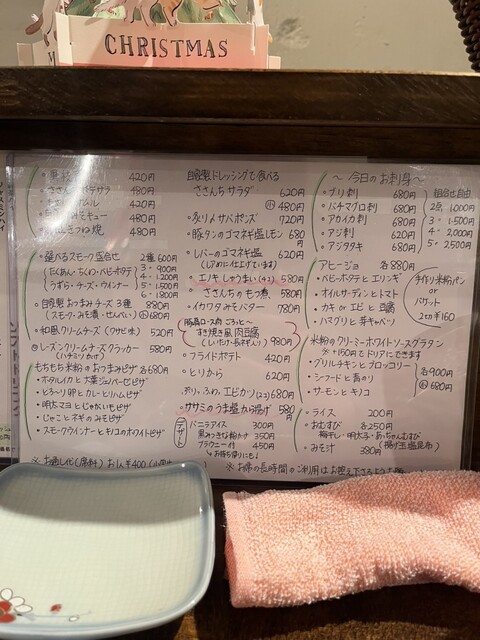 CHRISTMAS
420円
ささんちポテサラ 480円
480円
みそキュー 480円
きつね焼 480円
選べるスモーク盛合せ 2種 600円
たくあん・ちくわ・ベビポテタ 3・900円
4・1200円
うずら・チーズ・ウインナー 5・1500円
6・1800円
自家製 おまみチーズ 3種 880円
(スモーク・みそ漬・せんべい) 小 680円
和風クリームチーズ(ワサビ味) 520円
レーズンクリームチーズクラッカー 580円
(ハチミツかけ)
もちもち 米粉のおつまみピザ 各680円
ホタルイカと大葉ジェノベーゼピザ
とろーり卵とカレーとリハムピザ
明太マヨとじゃがいもピザ
じゃことネギのみそピザ
スモークウインナーとキノコのホワイトピザ
※お通し代(席料) お1人¥400
自家製ドレッシングで食べる
ささんちサラダ 620円
小 480円
炙り〆サバポンズ 720円
豚タンのゴマネギ塩レモン 680円
レバーのゴマネギ塩 620円
(レアめに仕上げています)
エノキしゅうまい(4コ) 580円
ささんちのもつ煮 580円
イカワタみそバター 780円
豚肩ロース肉ごろっと〜
すき焼き風肉豆腐
(しいたけ・長ネギ入り) 980円
フライドポテト 420円
とりから 620円
ぷりっぷり。エビカツ(2コ) 680円
ササミのうま塩から揚げ 580円
デザート
バニラアイス 300円
黒みつきな粉かけ 350円
ブラウニー付 450円
お持ち帰りにも!
※お席の長時間のご利用はお控え下さるよう
〜今日のお刺身〜
ブリ刺 680円
バチマグロ刺 680円
アカイカ刺 680円
アジ刺 620円
アジタタキ 680円
組合せ自由
2点 1,000円
3・1,500円
4・2,000円
5・2,500円
アヒージョ 各880円
ベビーホタテとエリンギ
オイルサーディンとトマト
カキ or エビと豆腐
ハマグリと芽キャベツ
手作り米粉パン
or
バケット
2切 ¥160
米粉のクリーミーホワイトソースグラタン
※+150円でドリアにできます
グリルチキンとブロッコリー
シーフードと青のり
サーモンとキノコ
各900円
小 680円
ライス 200円
おむすび 各250円
梅干し・明太子・あっちゃんむすび
(揚げ玉塩昆布)
みそ汁 380円